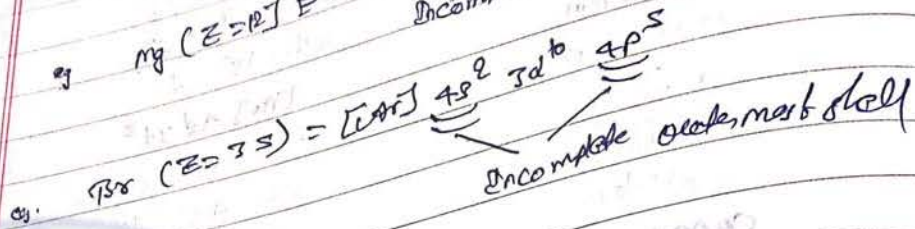 eg Mg (Z=12)
Incom
eg. Br (Z=35) = [Ar] 4s² 3d¹⁰ 4p⁵
Incomplete outermost shell